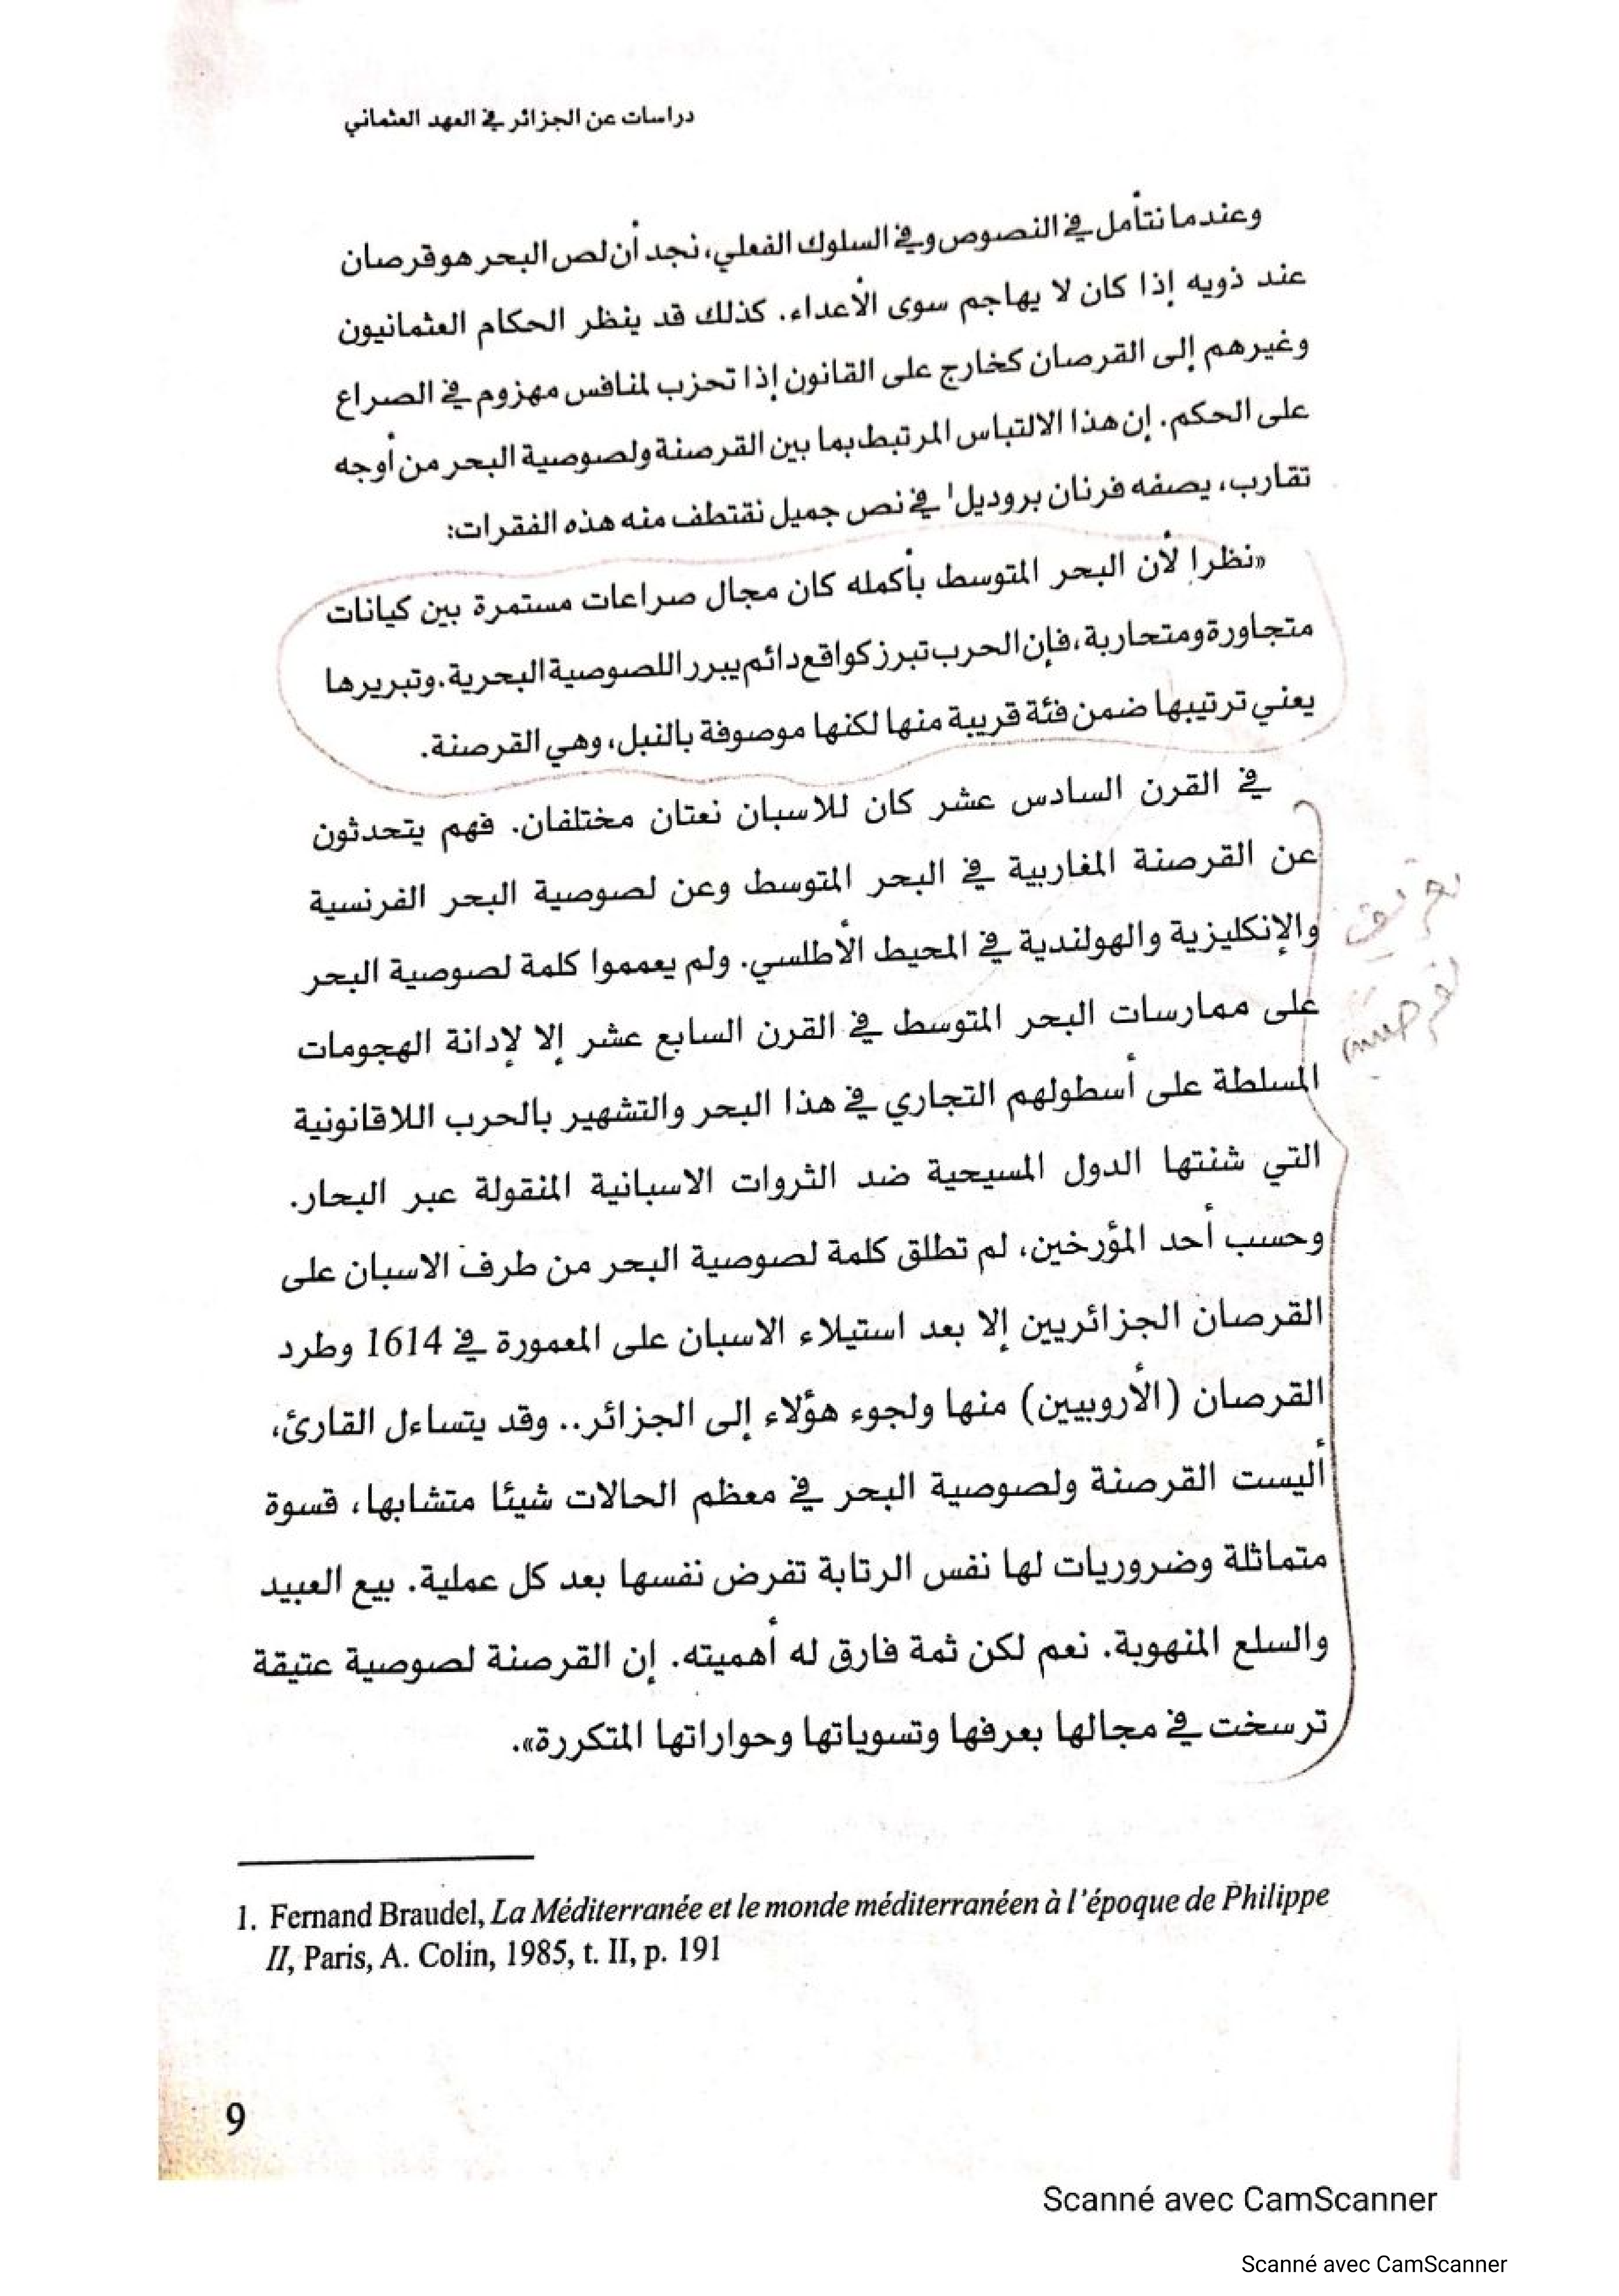 دراسات عن الجزائر في العهد العثماني
وعندما نتأمل في النصوص وفي السلوك الفعلي، نجد أن لص البحر هو قرصان
عند ذويه إذا كان لا يهاجم سوى الأعداء. كذلك قد ينظر الحكام العثمانيون
وغيرهم إلى القرصان كخارج على القانون إذا تحزب لمنافس مهزوم في الصراع
على الحكم. إن هذا الالتباس المرتبط بما بين القرصنة ولصوصية البحر من أوجه
تقارب، يصفه فرنان بروديل¹ في نص جميل نقتطف منه هذه الفقرات:
«نظرا لأن البحر المتوسط بأكمله كان مجال صراعات مستمرة بين كيانات
متجاورة ومتحاربة، فإن الحرب تبرز كواقع دائم يبرر اللصوصية البحرية. وتبريرها
يعني ترتيبها ضمن فئة قريبة منها لكنها موصوفة بالنبل، وهي القرصنة.
في القرن السادس عشر كان للاسبان نعتان مختلفان. فهم يتحدثون
عن القرصنة المغاربية في البحر المتوسط وعن لصوصية البحر الفرنسية
والإنكليزية والهولندية في المحيط الأطلسي. ولم يعمموا كلمة لصوصية البحر
على ممارسات البحر المتوسط في القرن السابع عشر إلا لإدانة الهجومات
المسلطة على أسطولهم التجاري في هذا البحر والتشهير بالحرب اللاقانونية
التي شنتها الدول المسيحية ضد الثروات الاسبانية المنقولة عبر البحار.
وحسب أحد المؤرخين، لم تطلق كلمة لصوصية البحر من طرف الاسبان على
القرصان الجزائريين إلا بعد استيلاء الاسبان على المعمورة في 1614 وطرد
القرصان (الأروبيين) منها ولجوء هؤلاء إلى الجزائر.. وقد يتساءل القارئ،
أليست القرصنة ولصوصية البحر في معظم الحالات شيئا متشابها، قسوة
متماثلة وضروريات لها نفس الرتابة تفرض نفسها بعد كل عملية. بيع العبيد
والسلع المنهوبة. نعم لكن ثمة فارق له أهميته. إن القرصنة لصوصية عتيقة
ترسخت في مجالها بعرفها وتسوياتها وحواراتها المتكررة».
1. Fernand Braudel, La Méditerranée et le monde méditerranéen à l'époque de Philippe
II, Paris, A. Colin, 1985, t. II, p. 191
9
Scanné avec CamScanner
Scanné avec CamScanner